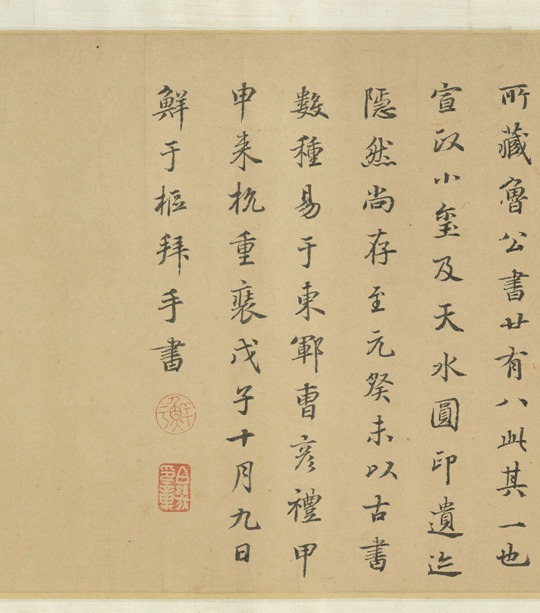 所藏魯公書廿有八此其一也
宣政小璽及天水圓印遺迹
隱然尚存至元癸未以古書
數種易于東鄆曹彦禮甲
申来杭重裝戊子十月九日
鮮于樞拜手書
鮮于